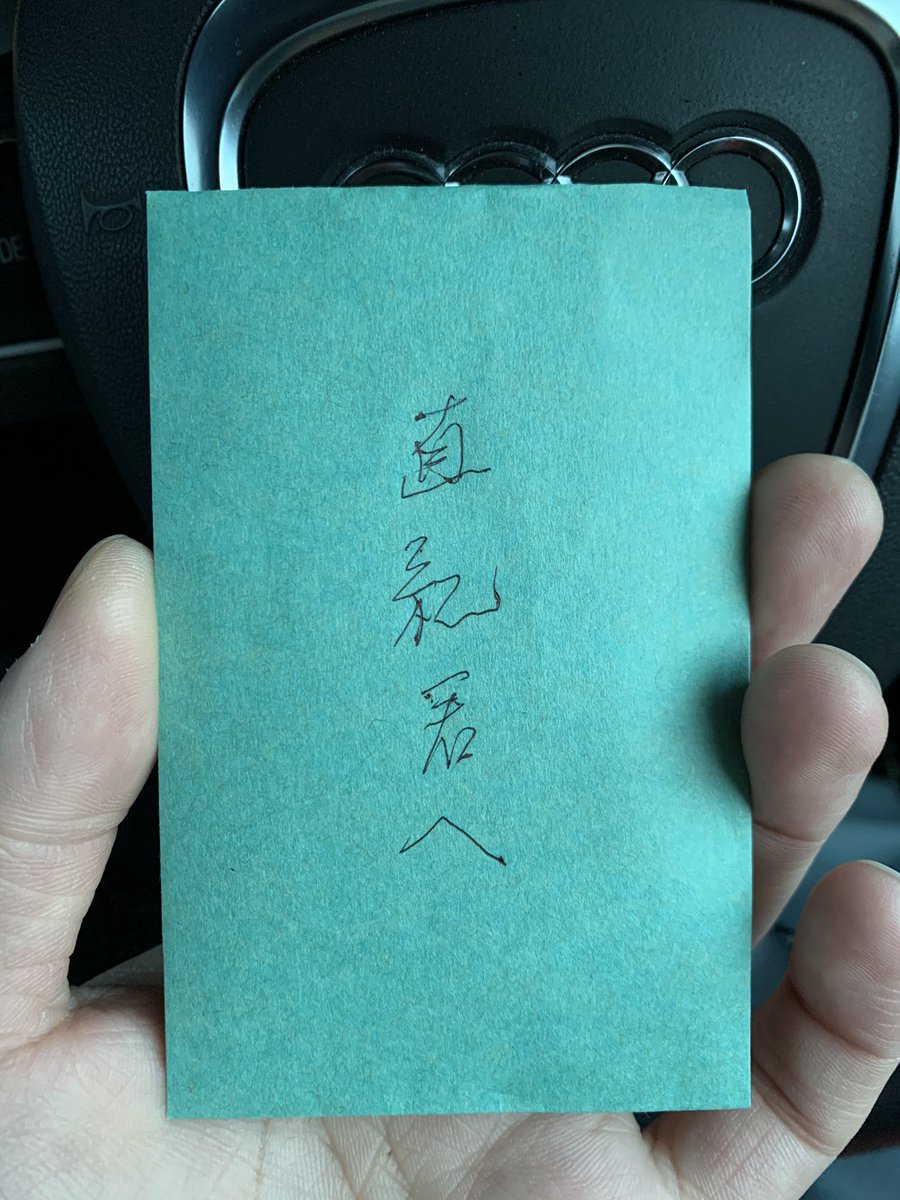 直紀君へ
DE